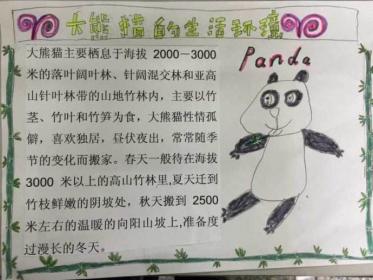 大熊猫的生活环境
Panda
大熊猫主要栖息于海拔 2000—3000
米的落叶阔叶林、针阔混交林和亚高
山针叶林带的山地竹林内，主要以竹
茎、竹叶和竹笋为食，大熊猫性情孤
僻，喜欢独居，昼伏夜出，常常随季
节的变化而搬家。春天一般待在海拔
3000 米以上的高山竹林里,夏天迁到
竹枝鲜嫩的阴坡处，秋天搬到 2500
米左右的温暖的向阳山坡上,准备度
过漫长的冬天。